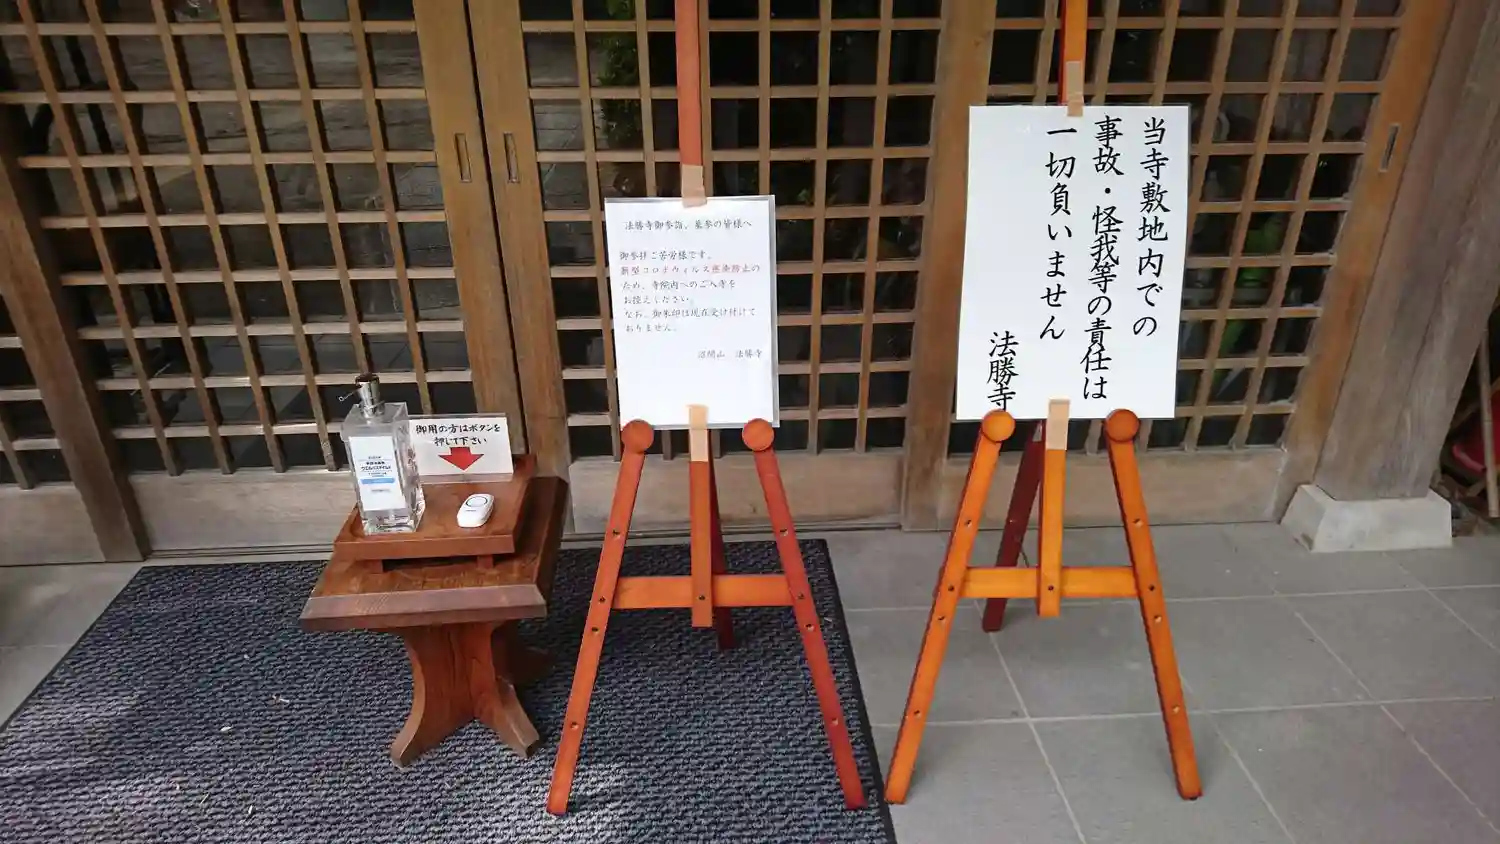 御用の方はボタンを
押して下さい
法勝寺御参詣、墓参の皆様へ
御参拝ご苦労様です。
新型コロナウィルス感染防止の
ため、寺院内へのご入寺を
お控えください。
なお、御朱印は現在受け付けて
おりません。
沼間山 法勝寺
当寺敷地内での
事故・怪我等の責任は
一切負いません
法勝寺